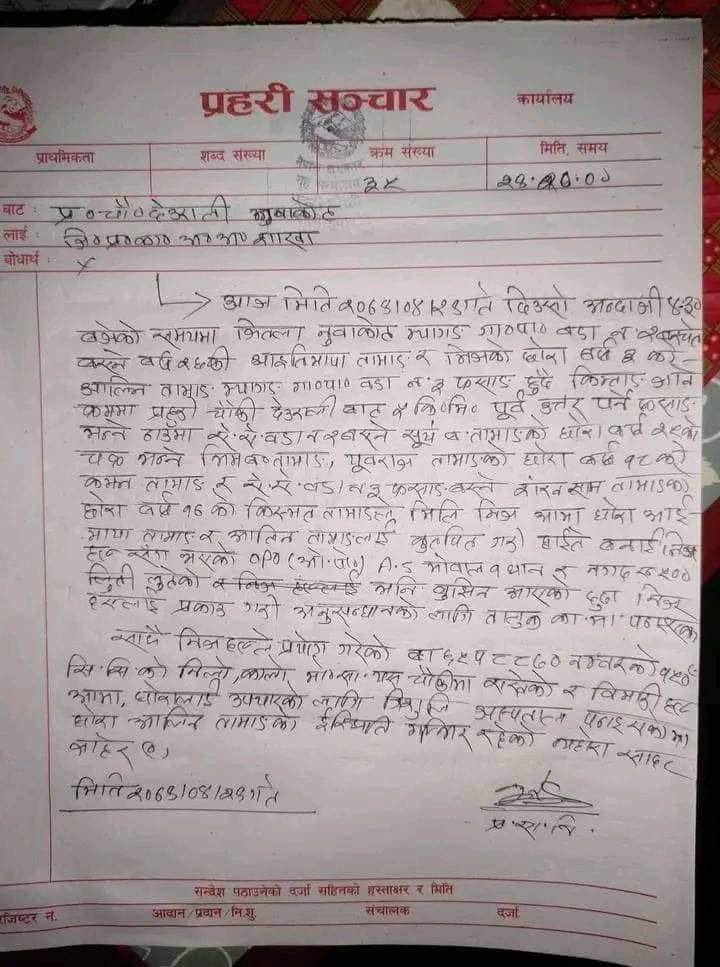 प्रहरी सञ्चार
कार्यालय
प्राथमिकता शब्द संख्या क्रम संख्या मिति, समय
३५
बाट : प्र०चौ०देउराली नुवाकोट
लाई : जि०प्र०का० अ०अ० शाखा
बोधार्थ : x
आज मिति २०७३।०४।२३गते दिउसो अन्दाजी ४:३०
बजेको समयमा जिल्ला नुवाकोट म्यागङ गा०पा० वडा नं २ बस्ने
बर्ष २६की आइतिमाया तामाङ र निजको छोरा बर्ष ३ को
आलिन तामाङ म्यागङ गा०पा० वडा नं ३ फसाङ हुदै किम्ताङ जाने
क्रममा प्रहरी चौकी देउराली बाट २ कि०मि० पूर्व उत्तर पर्ने फसाङ
भन्ने ठाउँमा ऐ.ऐ. वडा नं २ बस्ने सूर्य ब. तामाङको छोरा बर्ष २१का
भन्ने भिमब० तामाङ, युवराज तामाङको छोरा बर्ष १८ को
कमन तामाङ र ऐ.ऐ. वडा नं ३ फसाङ बस्ने तामाङको
छोरा बर्ष १६ को किस्मत तामाङले मिलि निज आमा छोरा आइ
माया तामाङ र आलिन तामाङलाई कुटपिट गरी घाईते बनाई निज
संग भएको OPO (ओ.पो.) A.5 मोबाल १ थान र नगद रु ५००
लुटी लुटेको र अनि आएको हुदा निज
हरुलाई पक्राउ गरी अनुसन्धानको लागि
साथै निज हरुले प्रयोग गरेको बा ६५ प ८८७० नम्बरको १५०
सि.सि.को निलो, कालो मो.सा. यस चौकीमा राखेको र बिमारी हरु
आमा, छोरालाई उपचारको लागि त्रिशुलि अस्पताल पठाई सकेको
छोरा आलिन तामाङको स्थिति गम्भिर रहेको व्यहोरा सादर
जाहेर छ।
मिति २०७३।०४।२३गते
प्र.स.नि.
सन्देश पठाउनेको दर्जा सहितको हस्ताक्षर र मिति
रजिष्टर नं. आदान/प्रदान/नि.शु. संचालक दर्जा